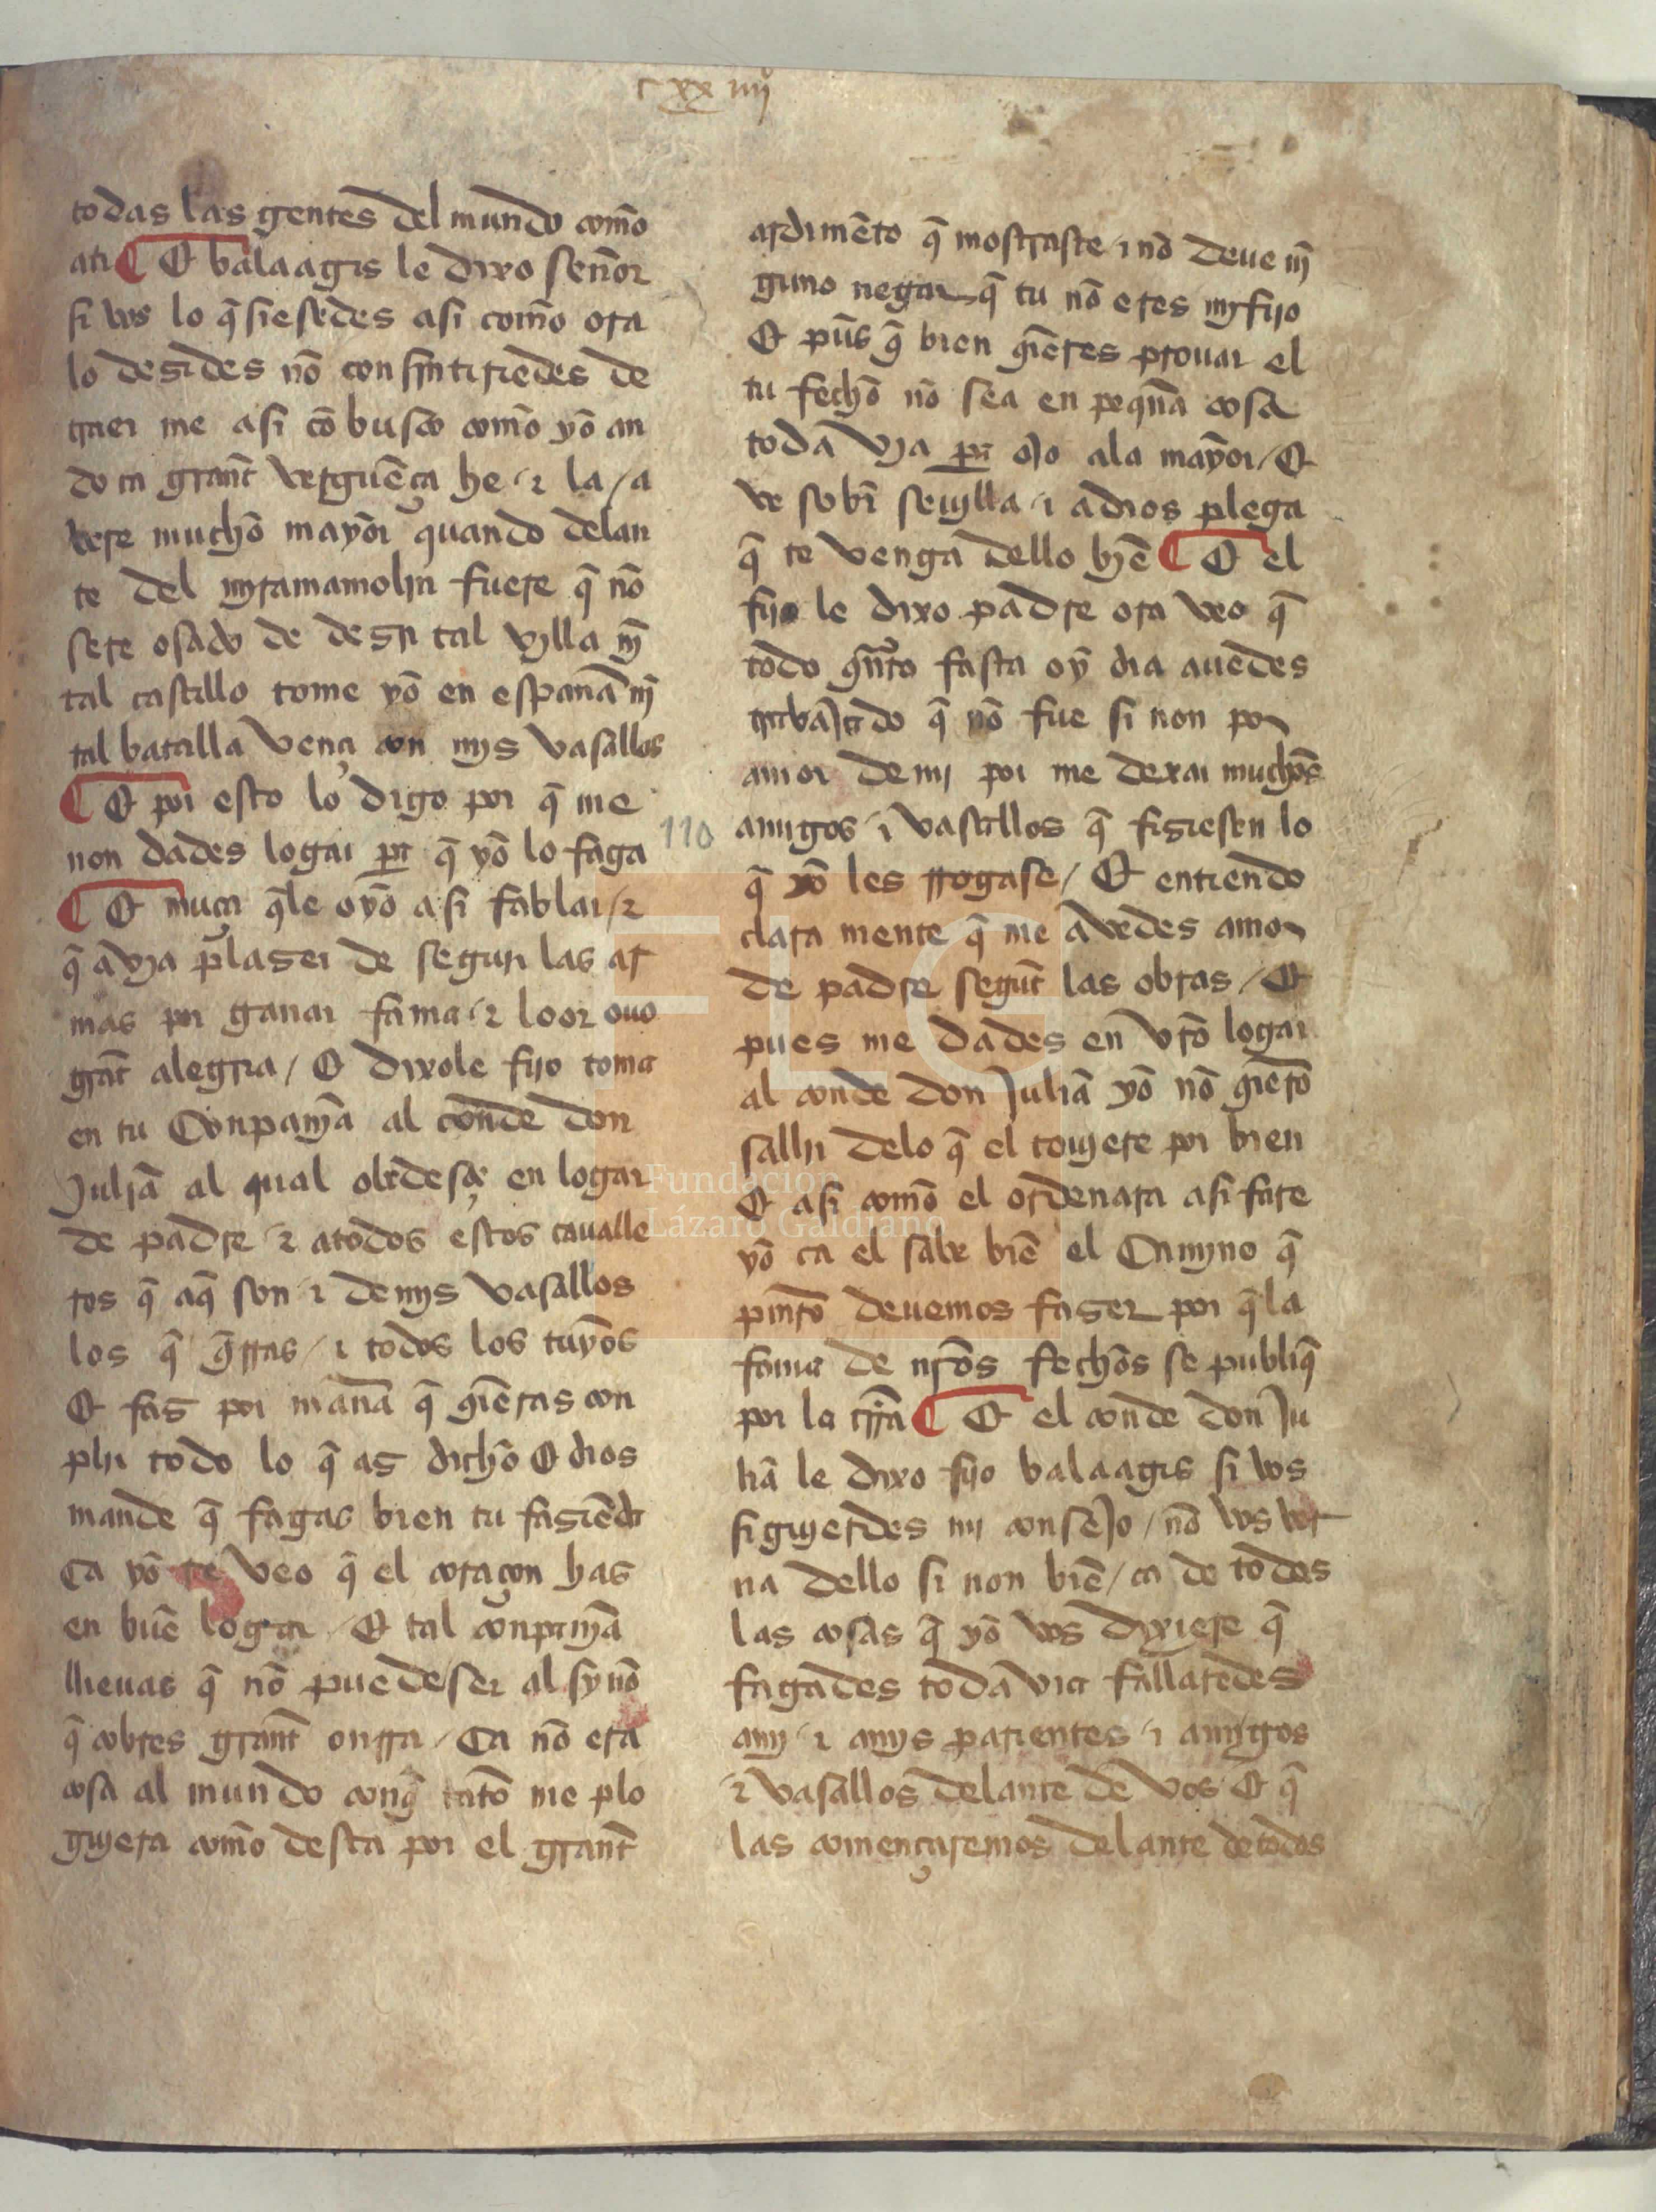 cxxiiijº
todas las gentes del mundo com̃o
ati ¶ Et balaagis le dixo señor
si vos lo q̃siesedes asi com̃o ora
lo desides nõ consintiriedes de
traer me asi cõ busco com̃o yõ an
do ca grant̃ verguẽça he / ⁊ la / a
vere muchõ mayor quando delan
te del myramamolin fuere q̃ nõ
sere osado de desir tal villa nĩ
tal castillo tome yõ en españa nĩ
tal batalla vençi con mys vasallos
¶ Et por esto lo digo por q̃ me
non dades logar par q̃ yõ lo faga
¶ Et muça q̃le oyõ asi fablar / ⁊
q̃ avia plaser de seguir las ar
mas por ganar fama / ⁊ loor ouo
grãt alegria / Et dixole fijo toma
en tu Conpañia al conde don
Juliã al qual obedesçe en logar
de padre / ⁊ atodos estos caualle
ros q̃ aq̃ son ⁊ de mys vasallos
los q̃ q̃rras / ⁊ todos los tuyõs
Et fas por manã q̃ q̃eras con
plir todo lo q̃ as dichõ Et dios
mande q̃ fagas bien tu fasiẽda
Ca yõ te veo q̃ el coraçon has
en buẽ logar / Et tal conpañia
llieuas q̃ nõ puede ser al sy nõ
q̃ cobres grant̃ onrra / Ca nõ era
cosa al mundo conq̃ tãto me plo
guyera com̃o desta por el grant̃
ardimẽto q̃ mostraste / ⁊ nõ deue nĩ
guno negar q̃ tu nõ eres my fijo
Et pũs q̃ bien q̃eres prouar el
tu fechõ nõ sea en pequña cosa
toda via par ojo ala mayor / Et
ve sobr̃ seuylla / ⁊ adios plega
q̃ te venga dello byẽ ¶ Et el
fijo le dixo padre ora veo q̃
todo q̃nto fasta oy dia auedes
trabajado q̃ nõ fue si non por
amor de mj por me dexar muchõs
amigos / ⁊ vasallos q̃ fisiesen lo
q̃ yõ les rrogase / Et entiendo
clara mente q̃ me avedes amor
de padre segunt̃ las obras / Et
pues me dades en vr̃o logar
al conde don Juliã yõ nõ q̃ero
sallir delo q̃ el touyere por bien
Et asi com̃o el ordenara asi fare
yõ ca el sabe biẽ el Camyno q̃
prim̃o deuemos faser por q̃ la
fama de nr̃os fechõs se publiq̃
por la tr̃ra ¶ Et el conde don Ju
liã le dixo fijo balaagis si vos
siguyerdes mj consejo / nõ vos ver
na dello si non biẽ / ca de todas
las cosas q̃ yõ vos dixiere q̃
fagades toda via fallaredes
amy / ⁊ amys parientes / ⁊ amygos
⁊ vasallos delante de vos Et q̃
las començaremos delante de todos
110
FLG
Fundación
Lázaro Galdiano